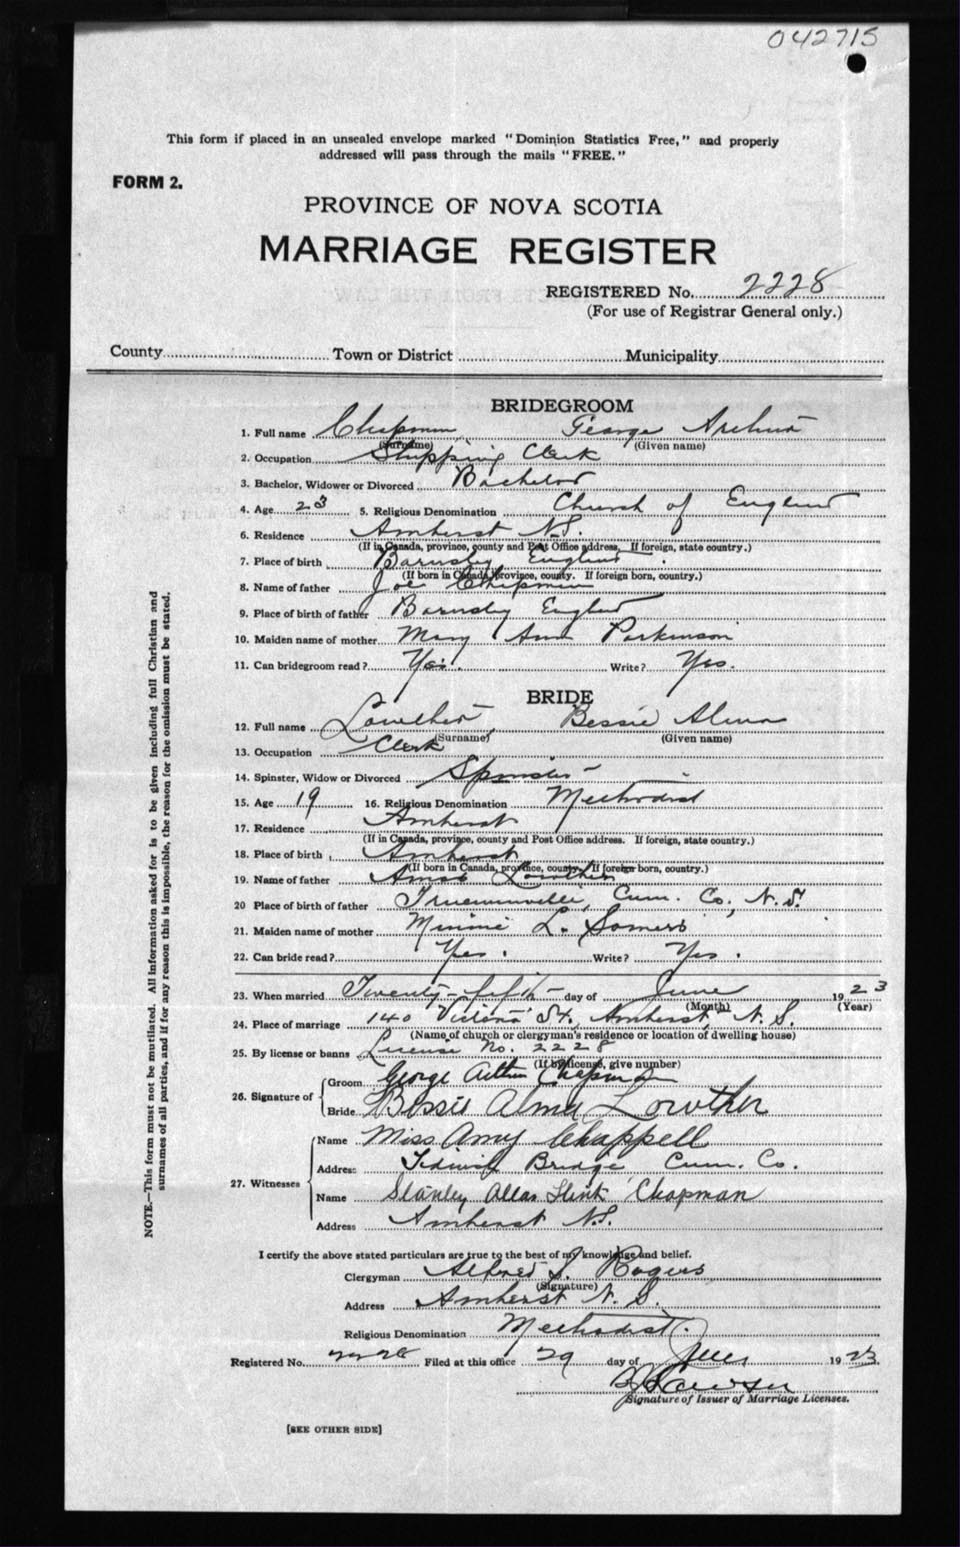 042715
This form if placed in an unsealed envelope marked "Dominion Statistics Free," and properly
addressed will pass through the mails "FREE."
FORM 2.
PROVINCE OF NOVA SCOTIA
MARRIAGE REGISTER
REGISTERED No. 2228
(For use of Registrar General only.)
County Town or District Municipality
BRIDEGROOM
1. Full name Chapman George Arthur
(Surname) (Given name)
2. Occupation Shipping Clerk
3. Bachelor, Widower or Divorced Bachelor
4. Age 23 5. Religious Denomination Church of England
6. Residence Amherst N.S.
(If in Canada, province, county and Post Office address. If foreign, state country.)
7. Place of birth Barnsley England
(If born in Canada, province, county. If foreign born, country.)
8. Name of father Joe Chapman
9. Place of birth of father Barnsley England
10. Maiden name of mother Mary Ann Parkinson
11. Can bridegroom read? Yes. Write? Yes.
BRIDE
12. Full name Lowther Bessie Alma
(Surname) (Given name)
13. Occupation Clerk
14. Spinster, Widow or Divorced Spinster
15. Age 19 16. Religious Denomination Methodist
17. Residence Amherst
(If in Canada, province, county and Post Office address. If foreign, state country.)
18. Place of birth Amherst
(If born in Canada, province, county. If foreign born, country.)
19. Name of father Amos Lowther
20 Place of birth of father Truemanville, Cum. Co., N.S.
21. Maiden name of mother Minnie L. Somers
22. Can bride read? Yes. Write? Yes.
23. When married Twenty-fifth day of June 1923
(Month) (Year)
24. Place of marriage 140 Victoria St., Amherst, N.S.
(Name of church or clergyman's residence or location of dwelling house)
25. By license or banns License No. 2228
(If by license, give number)
26. Signature of Groom George Arthur Chapman
Bride Bessie Alma Lowther
27. Witnesses Name Miss Amy Chappell
Address Tidnish Bridge Cum. Co.
Name Stanley Allan Flint Chapman
Address Amherst N.S.
I certify the above stated particulars are true to the best of my knowledge and belief.
Clergyman Alfred S. Rogers
(Signature)
Address Amherst N.S.
Religious Denomination Methodist.
Registered No. 2228 Filed at this office 29 day of June 1923
Signature of Issuer of Marriage Licenses.
[SEE OTHER SIDE]
NOTE.—This form must not be mutilated. All information asked for is to be given including full Christian and
surnames of all parties, and if for any reason this is impossible, the reason for the omission must be stated.